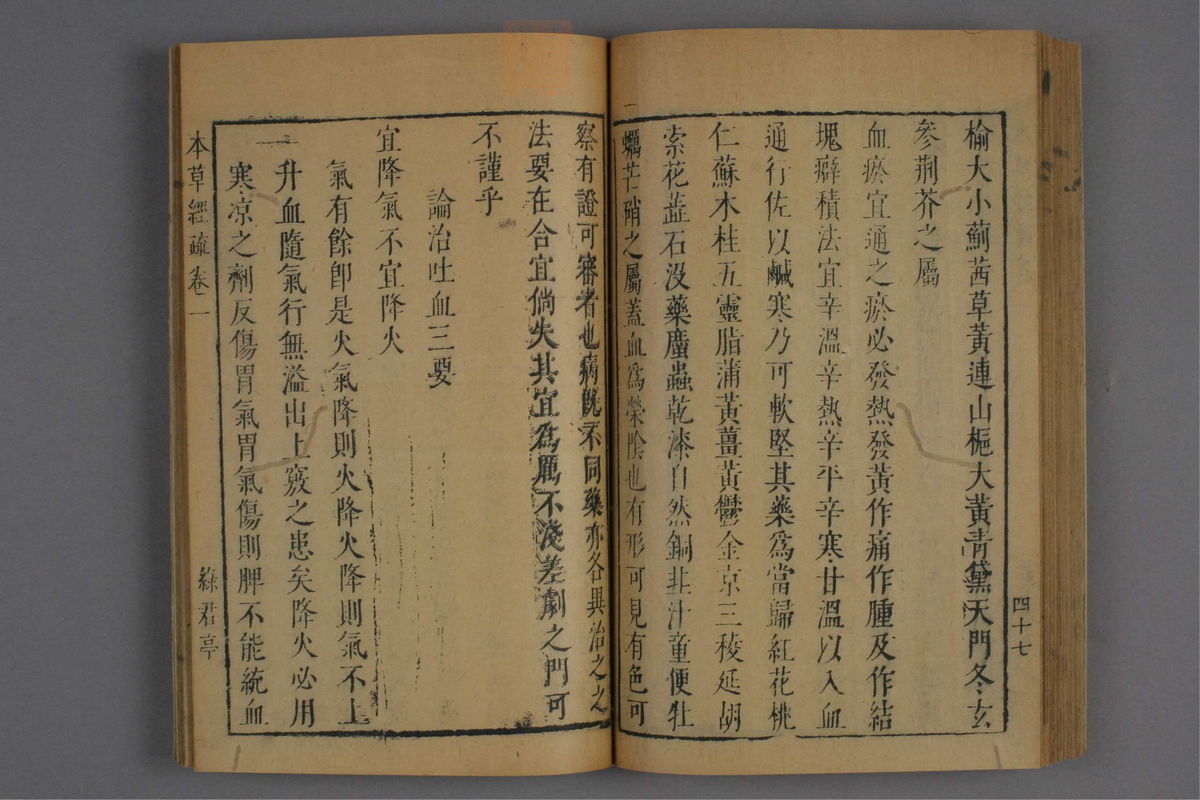 四十七
榆大小薊茜草黃連山梔大黃青黛天門冬玄
參荊芥之屬
血瘀宜通之瘀必發熱發黃作痛作腫及作結
塊癖積法宜辛溫辛熱辛平辛寒甘溫以入血
通行佐以鹹寒乃可軟堅其藥為當歸紅花桃
仁蘇木桂五靈脂蒲黃薑黃鬱金京三稜延胡
索花蕋石沒藥䗪蟲乾漆自然銅韭汁童便牡
蠣芒硝之屬蓋血爲榮陰也有形可見有色可
察有證可審者也病既不同藥亦各異治之之
法要在合宜倘失其宜爲厲不淺差劇之門可
不謹乎
論治吐血三要
宜降氣不宜降火
氣有餘卽是火氣降則火降火降則氣不上
升血隨氣行無溢出上竅之患矣降火必用
寒凉之劑反傷胃氣胃氣傷則脾不能統血
本草經疏卷一
綠君亭